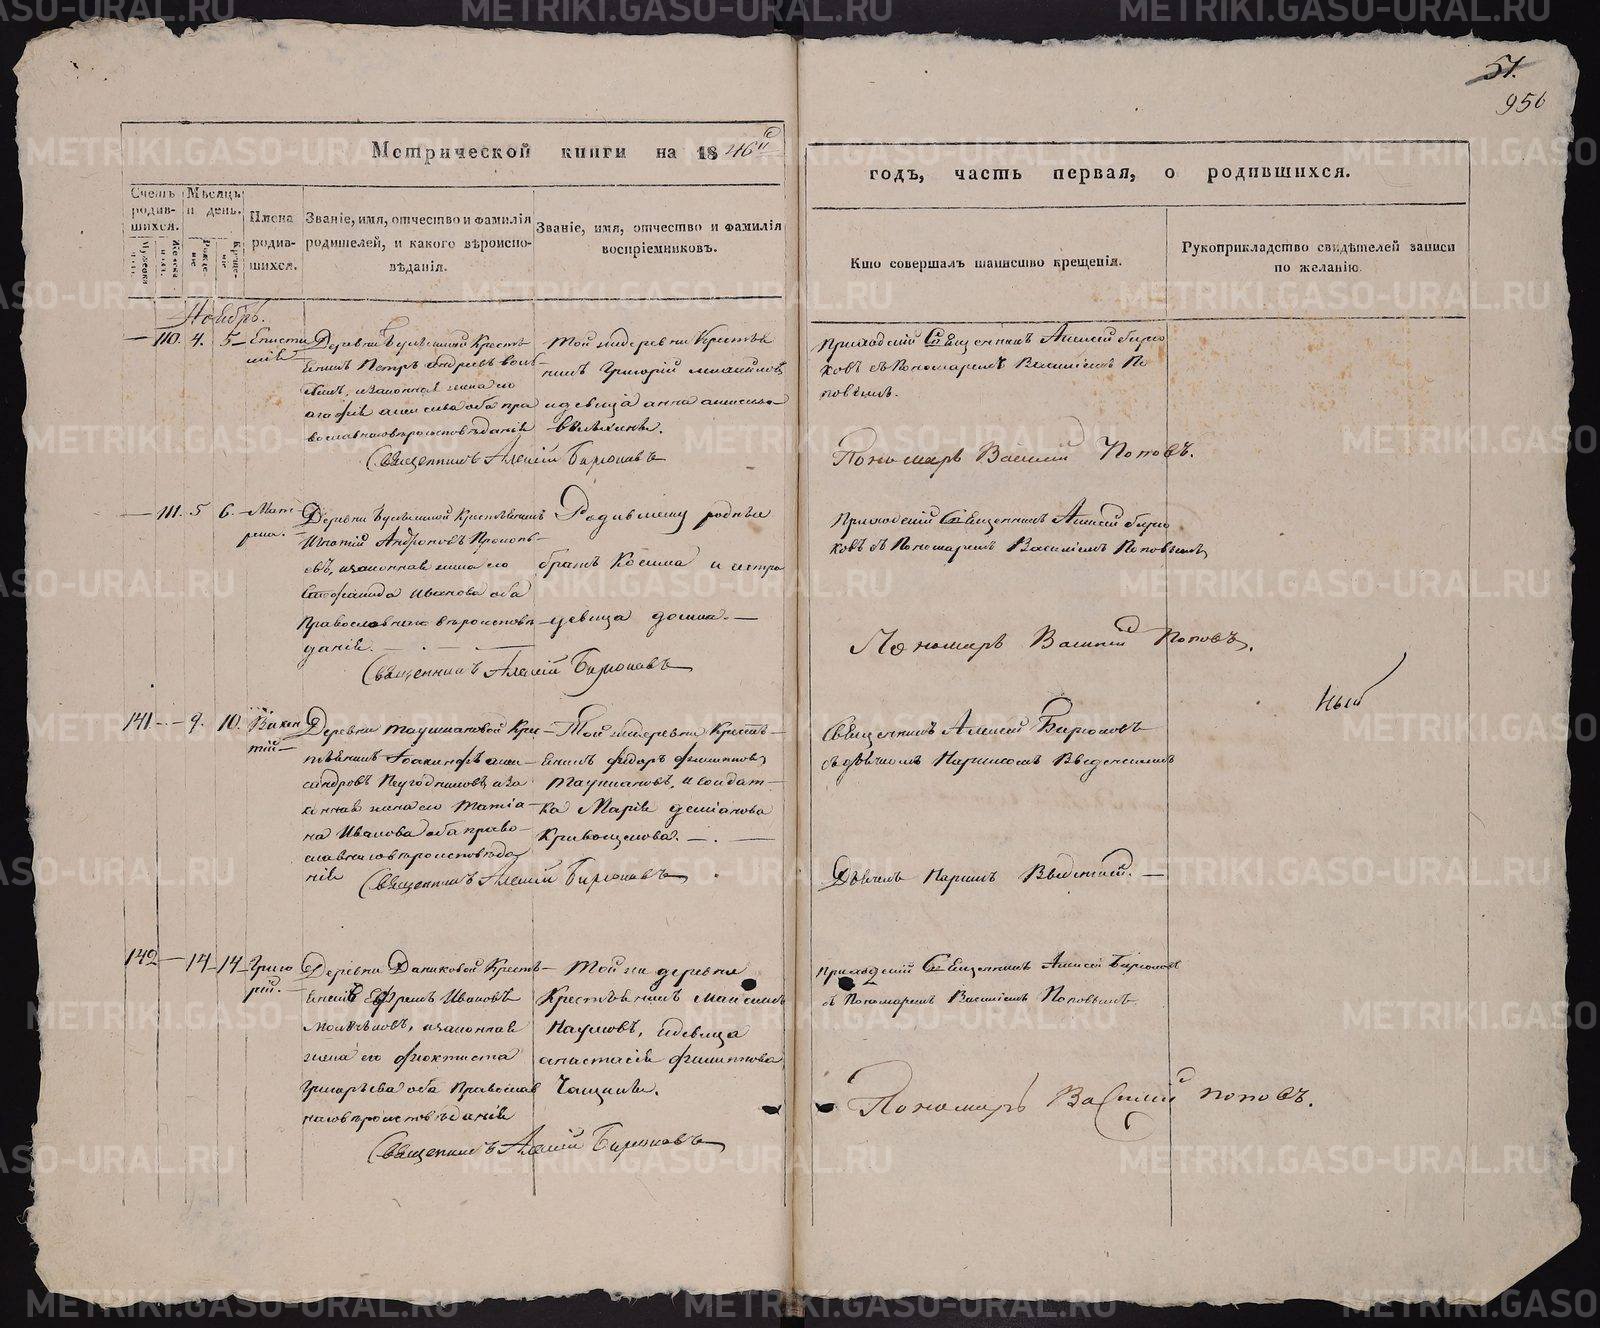 51.
956
Метрической книги на 1846й
годъ, часть первая, о родившихся.
Счетъ родив- шихся.
Мѣсяцъ и день.
Имена родив- шихся.
Званіе, имя, отчество и фамилія родителей, и какого вѣроиспо- вѣданія.
Званіе, имя, отчество и фамилія воспріемниковъ.
Кто совершалъ таинство крещенія.
Рукоприкладство свидѣтелей записи по желанію.
Ноябрь.
110. 4. 5
Деревни Кресть-
янинъ Петръ Андреевъ
и законная жена его
Агафія оба пра
вославнаго вѣроисповѣданія
Священникъ Алексій Бирюковъ
Той же деревни Кресть
нинъ Григорій Михайловъ
и девица Анна
Приходскій Священникъ Алексій Бирю
ковъ съ Пономаремъ Василіемъ По
повымъ.
Пономарь Василій Поповъ.
111. 5 6. Мат
рена.
Деревни Крестьянинъ
Игнатій Андроновъ Прокопь-
евъ, и законная жена его
Стефанида Иванова оба
Православнаго вѣроисповѣ
данія.
Священникъ Алексій Бирюковъ
Родившему родные
братъ Косьма и сестра
девица Домна.
Приходскій Священникъ Алексій Бирю
ковъ съ Пономаремъ Василіемъ Поповымъ
Пономарь Василій Поповъ.
141 9. 10. Викен
тій
Деревни Таушкановой Кре
стьянинъ Іоакинфъ Алек
сандровъ Неугодниковъ, и за
конная жена его Татіа
на Иванова оба право
славнаго вѣроисповѣда
нія
Священникъ Алексій Бирюковъ
Той же деревни Кресть
янинъ Фёдоръ Филипповъ
Таушкановъ, и солдат
ка Марія Деміанова
Кривощекова.
Священникъ Алексій Бирюковъ
съ дьячкомъ Наркисомъ Введенскимъ
Дьячекъ Наркисъ Введенскій.
142 14 14 Григо
рій.
Деревни Даниковой Кресть
янинъ Ефремъ Ивановъ
и законная
жена его Фиоктиста
Григорьева оба Православ
наго вѣроисповѣданія
Священникъ Алексій Бирюковъ
Той же деревни
Крестьянинъ Максимъ
Наумовъ, и девица
Анастасія Филиппова
Чащина.
Приходскій Священникъ Алексій Бирюковъ
съ Пономаремъ Василіемъ Поповымъ
Пономарь Василій Поповъ.
ный
METRIKI.GASO-URAL.RU